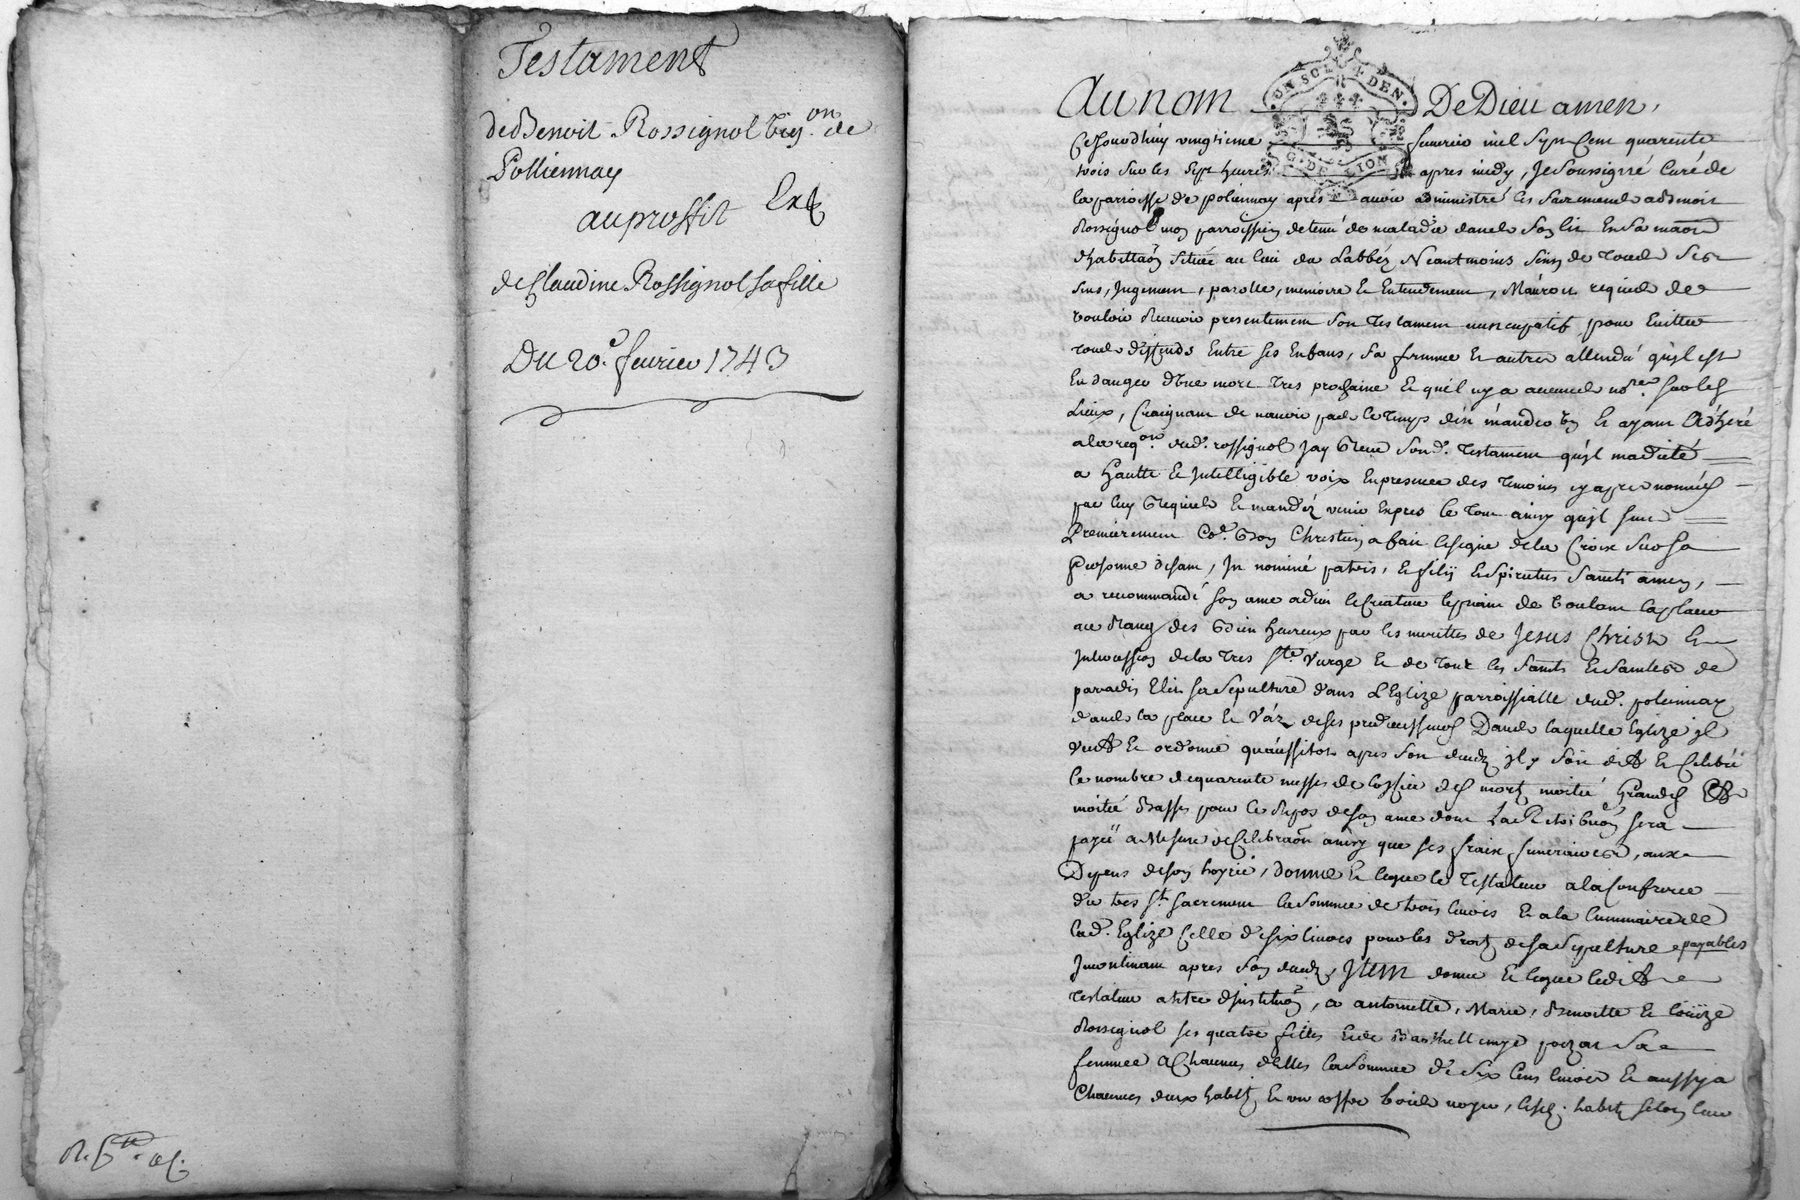 Testament
de Benoit Rossignol vig.on de
Polliennay
au proffit Ext
de Claudine Rossignol sa fille
Du 20.e feurier 1743
Au nom De Dieu amen,
UN SOL 4 DEN.
G. DE LION
Ce Jourdhuy vingtieme feurier mil sept Cent quarente
trois sur les sept heures apres midy, Je soussigné Curé de
la parroisse de poliennay apres auoir administré les sacrements a Benoit
Rossignol mon parroissien detenu de maladie dans son lit En sa maison
dhabitta͠on située au lieu de Labbéy Neantmoins sain de tous ses
sens, Jugement, parolle, memoire Et Entendement, M'auroit requis de
vouloir Receuoir presentement son testament nuncupatif pour Euitter
tous differends Entre ses Enfans, sa femme Et autres attendu qu'jl est
En danger d'Vne mort tres prochaine Et qu'il ny a aucuns no.res sur les
Lieux, Craignant de n'auoir pas le temps d'en mander vn Et ayant Adhéré
a la req.on dud. rossignol Jay Receu sond. testament qu'jl m'a dicté
a Haulte Et Intelligible voix En presence des temoins cy apres nommés
par luy Requis Et mandéz venir Expres le tout ainsy qu'jl suit
Premierement Co.e Bon Chrestien a fait le signe de la Croix sur sa
personne disant, In nominé patris, Et filij Et spiritus sancti amen,
a recommandé son ame a dieu le Createur le priant de vouloir la placer
au Rang des Bien Heureux par les merittes de Jesus Christ Et
Intercession de la tres S.te Vierge Et de tous les saints Et saintes de
paradis Elit sa sepulture dans L'Eglize parroissialle dud. poliennay
dans la place Et Váz de ses predecesseurs Dans laquelle Eglize jl
veut Et ordonne qu'aussitost apres son decedz jl y soit dit Et Celebré
le nombre de quarente messes de l'office des mortz moitié Grandes Et
moitié Basses pour le Repos de son ame dont La Retribu͠on sera
payée a Mesure de Celebra͠on ainsy que ses fraix funeraires, aux
Depens de son hoyrie, donne Et legue le Testateur a la Confrerie
du tres St. sacrement la somme de trois liures Et a la luminaire de
lad. Eglize Celle de six liures pour les droits de sa sepulture payables
Jncontinant apres son decedz, Jtem donne Et legue ledit
testateur a tiltre d'institu͠on, a antoinette, Marie, Benoitte Et Loüize
Rossignol ses quatre filles
femme a Chacunes d'Elles la somme de six Cens liures Et aussy a
Chacunes deux habitz Et vn coffre bois noyer, lesd. habits selon leur